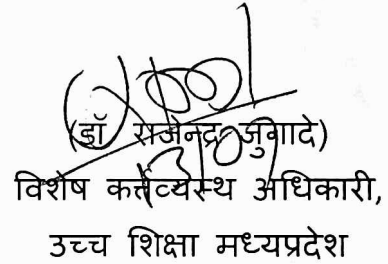 (डॉ राजेन्द्र जुगादे)
विशेष कर्त्तव्यस्थ अधिकारी,
उच्च शिक्षा मध्यप्रदेश